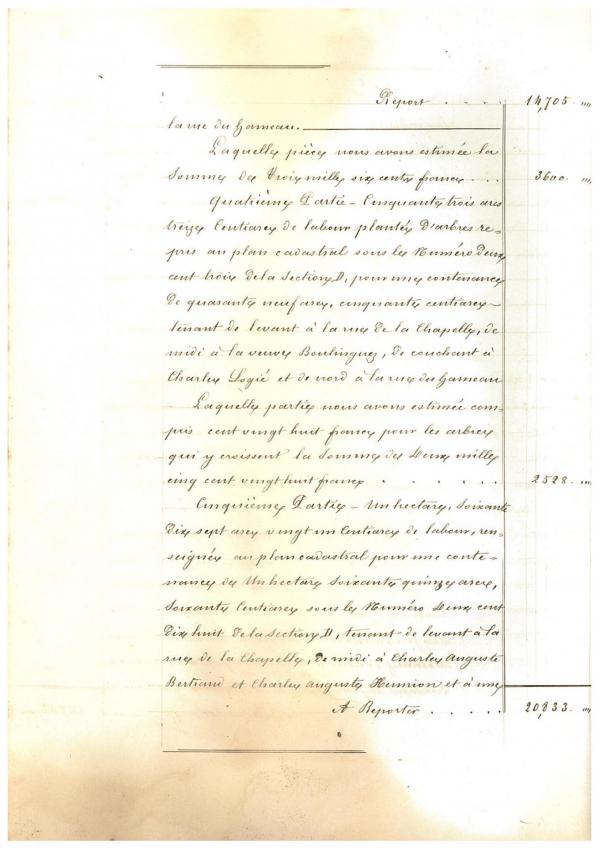 Report . . . . 14,705 . "
la rue du hameau.
Laquelle pièce nous avons estimée la
Somme de Trois mille six cents francs . . . 3600 . "
Quatrième Partie - Cinquante trois ares
treize Centiares de labour plantés D'arbres re-
pris au plan cadastral sous le Numéro Deux
cent trois De la Section D, pour une contenance
De quarante neuf ares, cinquante centiares -
tenant de levant à la rue De la Chapelle, de
midi à la veuve Boulinguez, de couchant à
Charles Logié et de nord à la rue du hameau
Laquelle partie nous avons estimée com-
pris cent vingt huit francs pour les arbres
qui y croissent la Somme de Deux mille
cinq cent vingt huit francs . . . . . . 2528 . "
Cinquième Partie - Un hectare, Soixante
Dix sept ares vingt un Centiares de labour, ren-
seignée au plan cadastral pour une conte-
nance de Un hectare Soixante quinze ares,
Soixante Centiares sous le Numéro Deux cent
Dix huit De la Section D, tenant de levant à la
rue de la Chapelle, De midi à Charles Auguste
Bertrand et Charles Auguste Hennion et à une
A Reporter . . . . . 20,833 . "